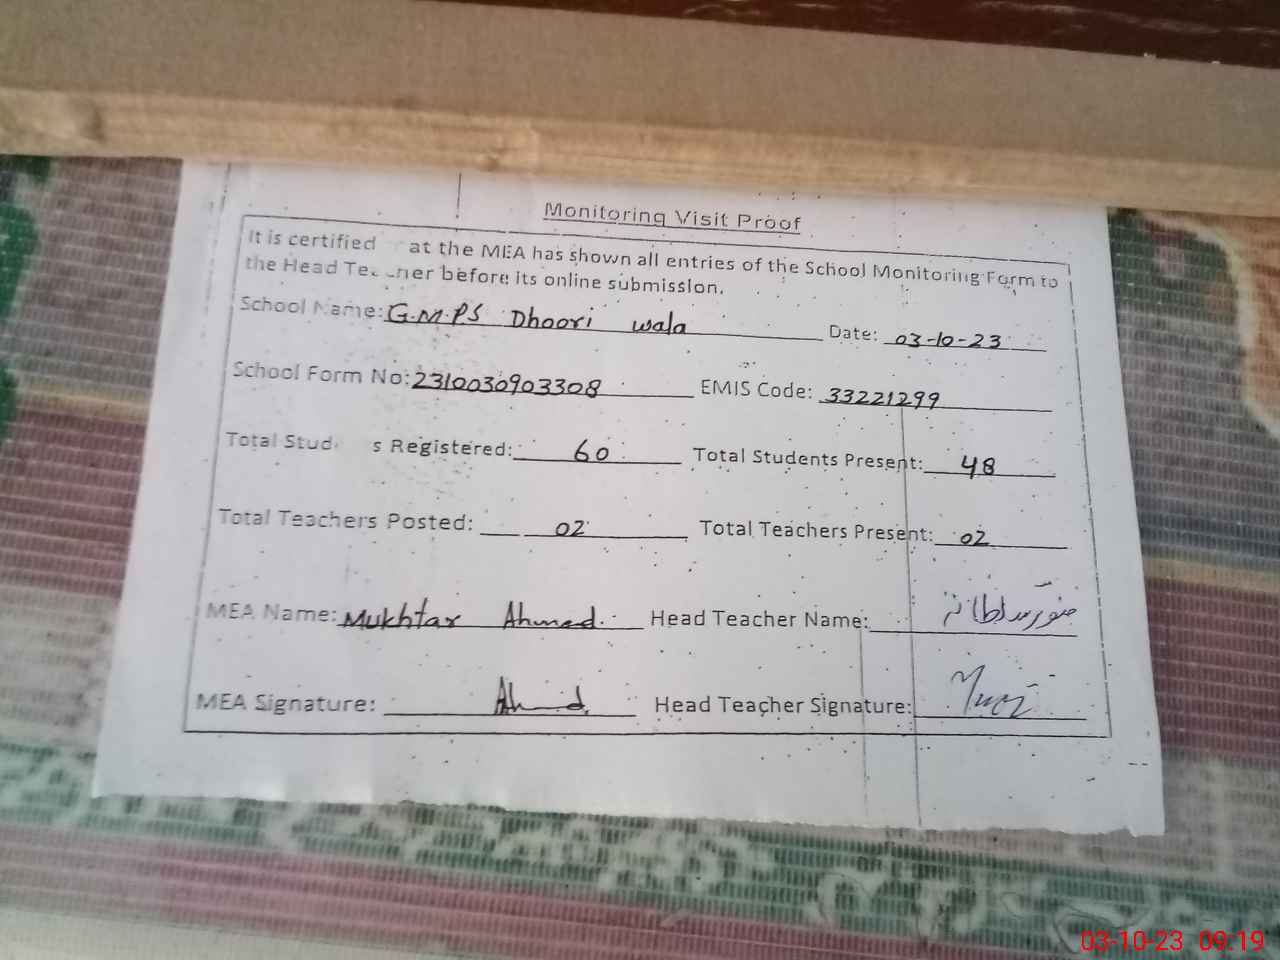 Monitoring Visit Proof
It is certified at the MEA has shown all entries of the School Monitoring Form to
the Head Te ner before its online submission.
School Name: G.M.P.S Dhoori wala Date: 03-10-23
School Form No: 2310030903308 EMIS Code: 33221299
Total Stud s Registered: 60 Total Students Present: 48
Total Teachers Posted: 02 Total Teachers Present: 02
MEA Name: Mukhtar Ahmed. Head Teacher Name:
MEA Signature: Ahmd. Head Teacher Signature:
03-10-23 09:19